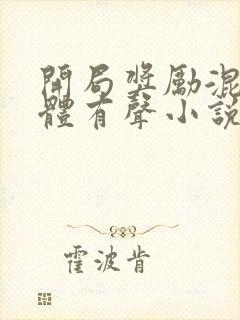 開局獎勵混
體有聲小說
霍波肯